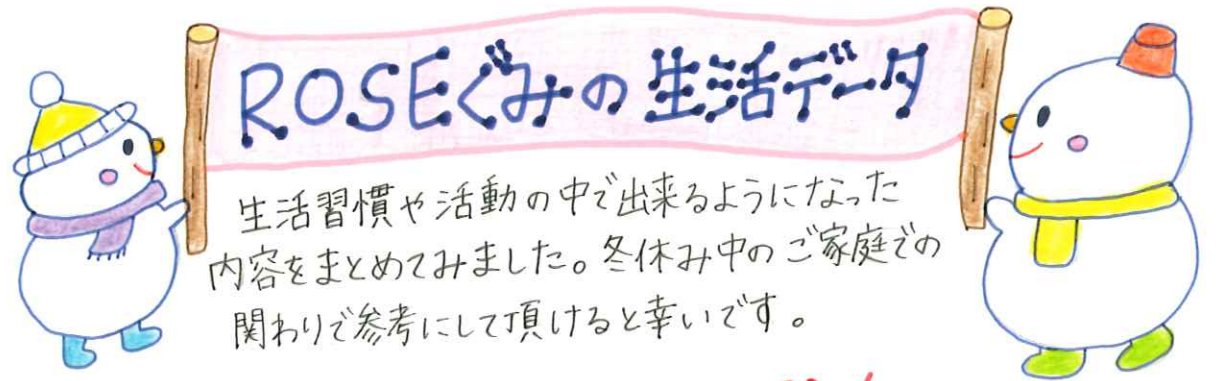 ROSEぐみの生活データ
生活習慣や活動の中で出来るようになった
内容をまとめてみました。冬休み中のご家庭での
関わりで参考にして頂けると幸いです。